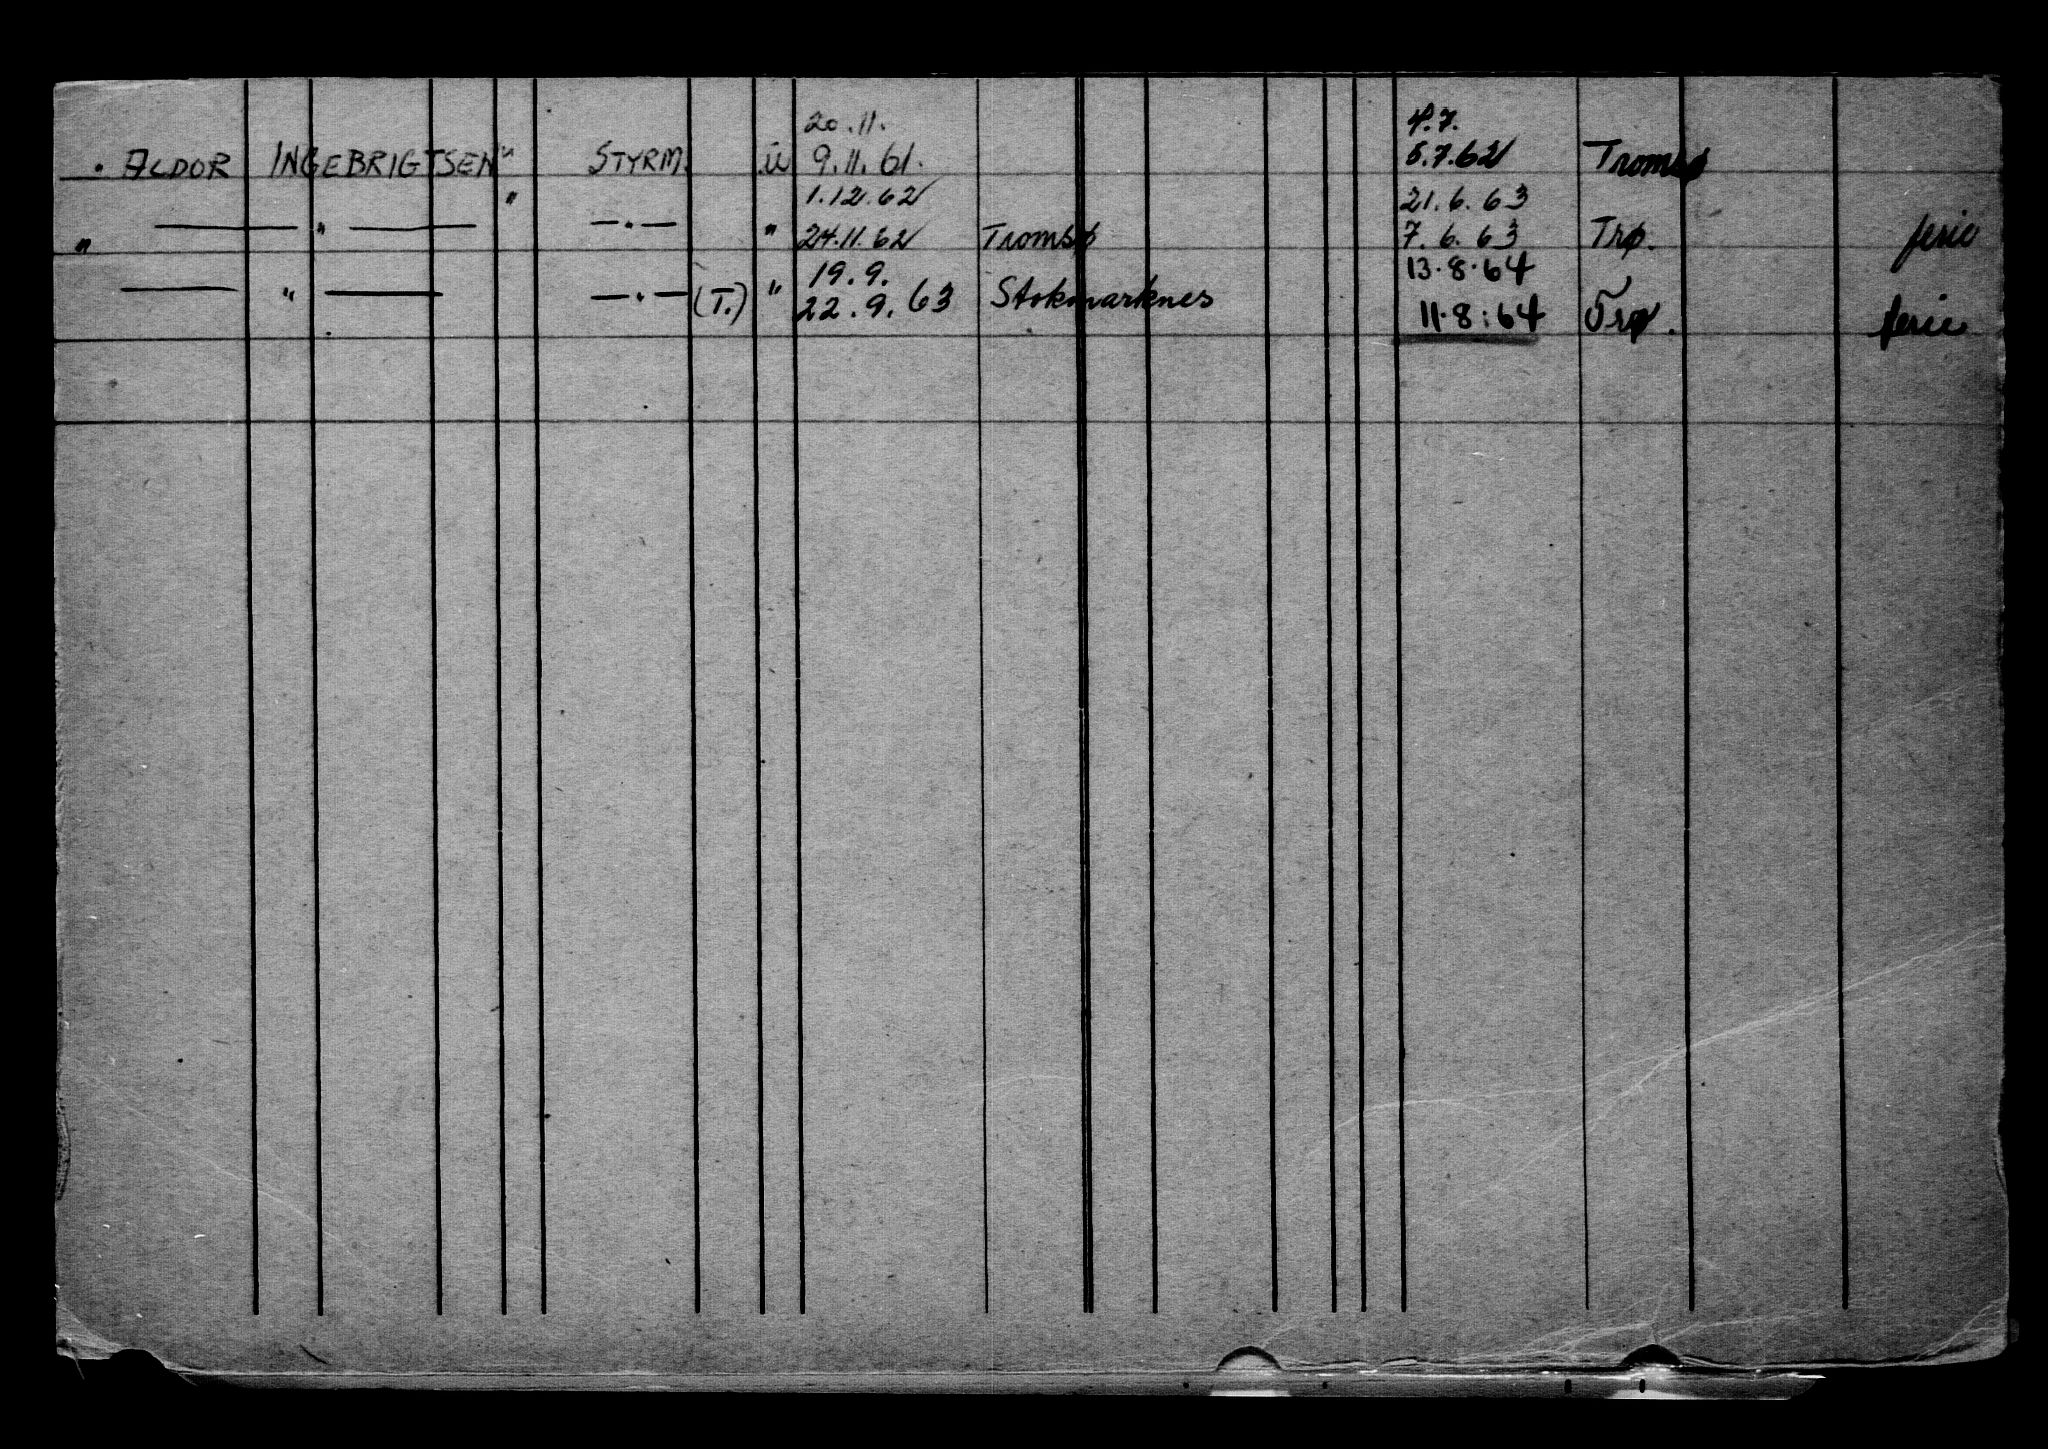 20.11. 4.7.
. ALDOR INGEBRIGTSEN " STYRM. ü 9.11.61. 5.7.62 Tromsø
" 1.12.62 21.6.63
" — " — — " — " 24.11.62 Tromsø 7.6.63 Trø. ferie
19.9. 13.8.64
— " — — " — (T.) " 22.9.63 Stokmarknes 11.8:64 Trø. ferie